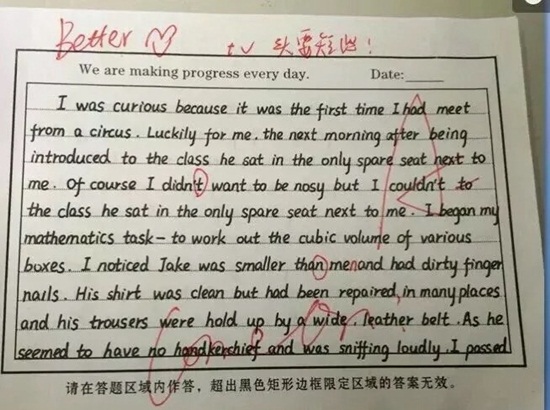 Better
tv 头要短些！
We are making progress every day. Date:
I was curious because it was the first time I had meet
from a circus. Luckily for me, the next morning after being
introduced to the class he sat in the only spare seat next to
me. Of course I didn't want to be nosy but I couldn't to
the class he sat in the only spare seat next to me. I began my
mathematics task- to work out the cubic volume of various
boxes. I noticed Jake was smaller than me n and had dirty finger
nails. His shirt was clean but had been repaired, in many places
and his trousers were hold up by a wide, leather belt. As he
seemed to have no handkerchief and was sniffing loudly. I passed
请在答题区域内作答，超出黑色矩形边框限定区域的答案无效。